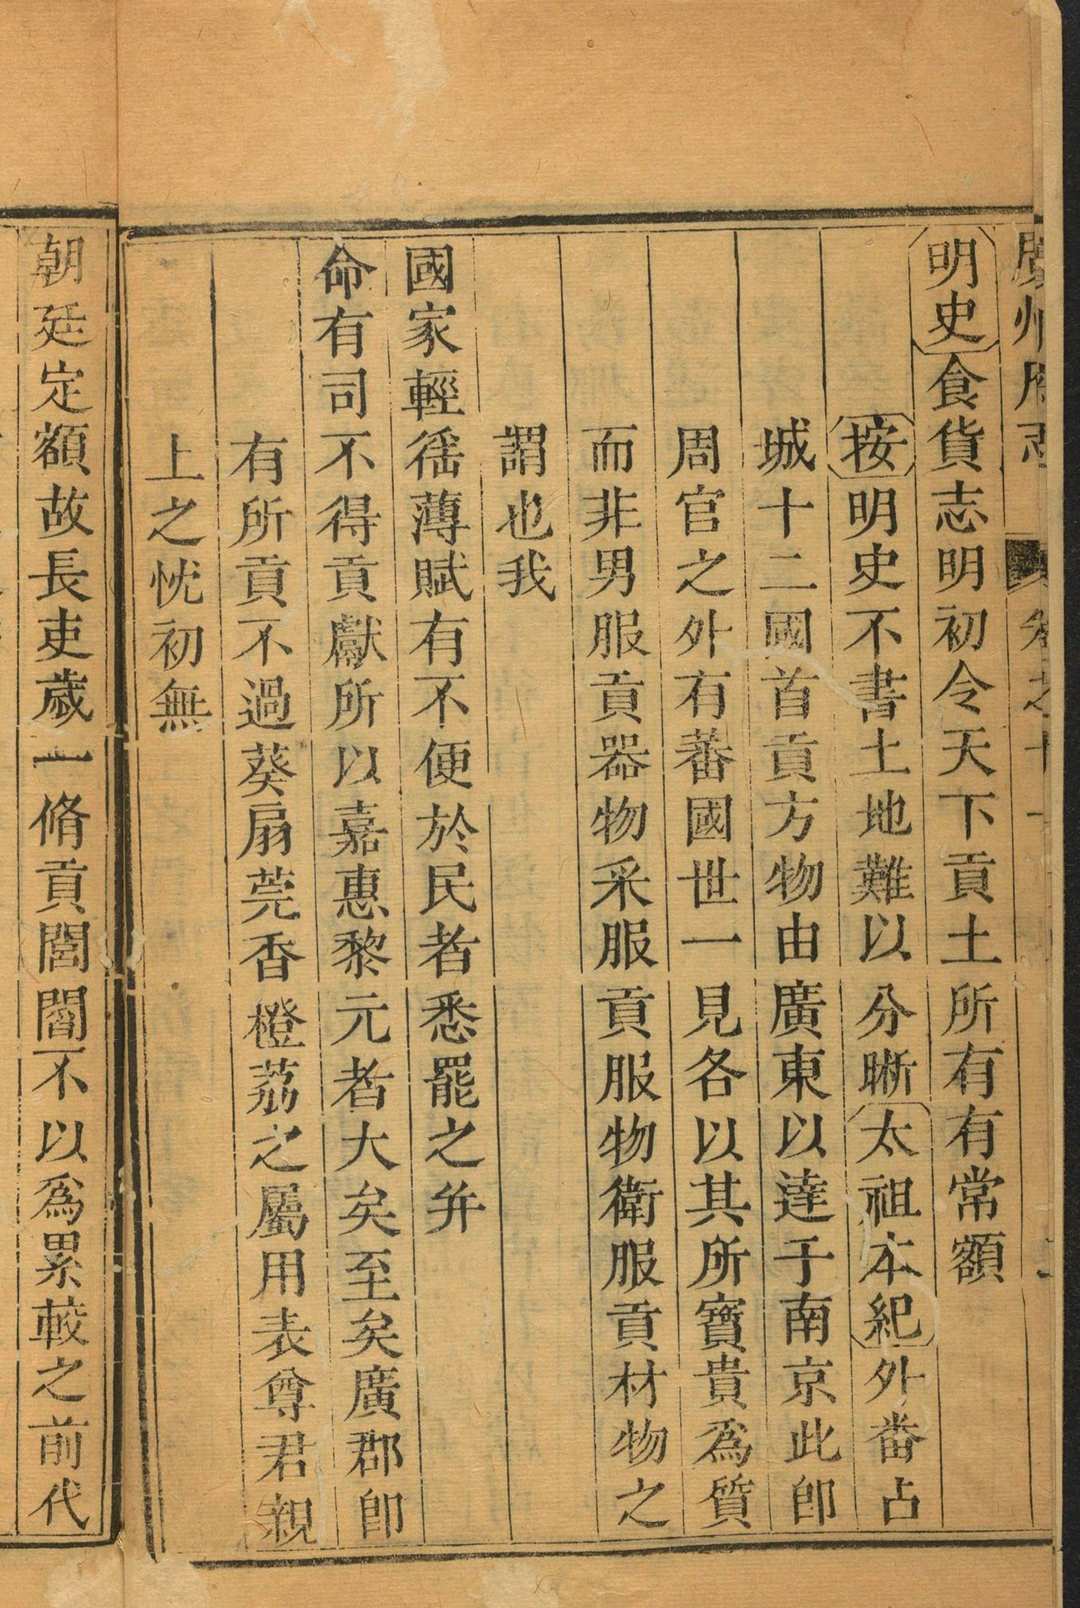 廣州府志 卷之十
明史食貨志明初令天下貢土所有有常額
按明史不書土地難以分晣太祖本紀外番占
城十二國首貢方物由廣東以達于南京此卽
周官之外有蕃國世一見各以其所寶貴爲質
而非男服貢器物采服貢服物衛服貢材物之
謂也我
國家輕徭薄賦有不便於民者悉罷之幷
命有司不得貢獻所以嘉惠黎元者大矣至矣廣郡卽
有所貢不過葵扇莞香橙荔之屬用表尊君親
上之忱初無
朝廷定額故長吏歲一脩貢閭閻不以爲累較之前代